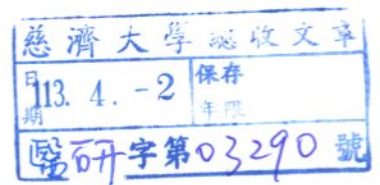 慈濟大學總收文章
日期 113. 4. -2 保存年限
醫研字第03290號